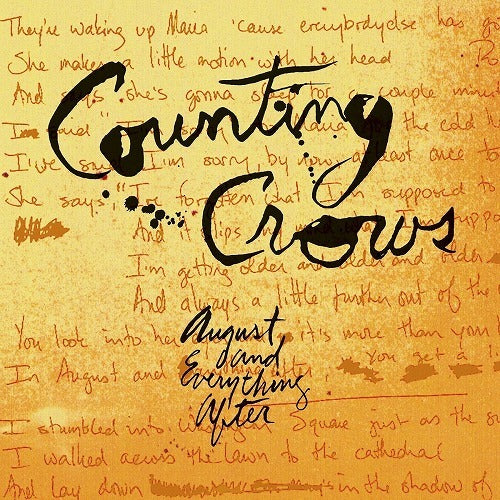 They're waking up Maria 'cause everybody else has go
She makes a little motion with her head
And says she's gonna sleep for a couple minu
Counting
I said "I'm sorry Maria for the cold h
I've said I'm sorry, by now, at least once to
She says, "I've forgotten what I'm supposed to
Crows
And it slips my
I'm getting older and older and older
And always a little further out of the
August,
and
Everything
After
You look into her it's more than your
In August and after You get a
I stumbled into Square just as the su
I walked across the lawn to the cathedral
And lay down in the shadow of